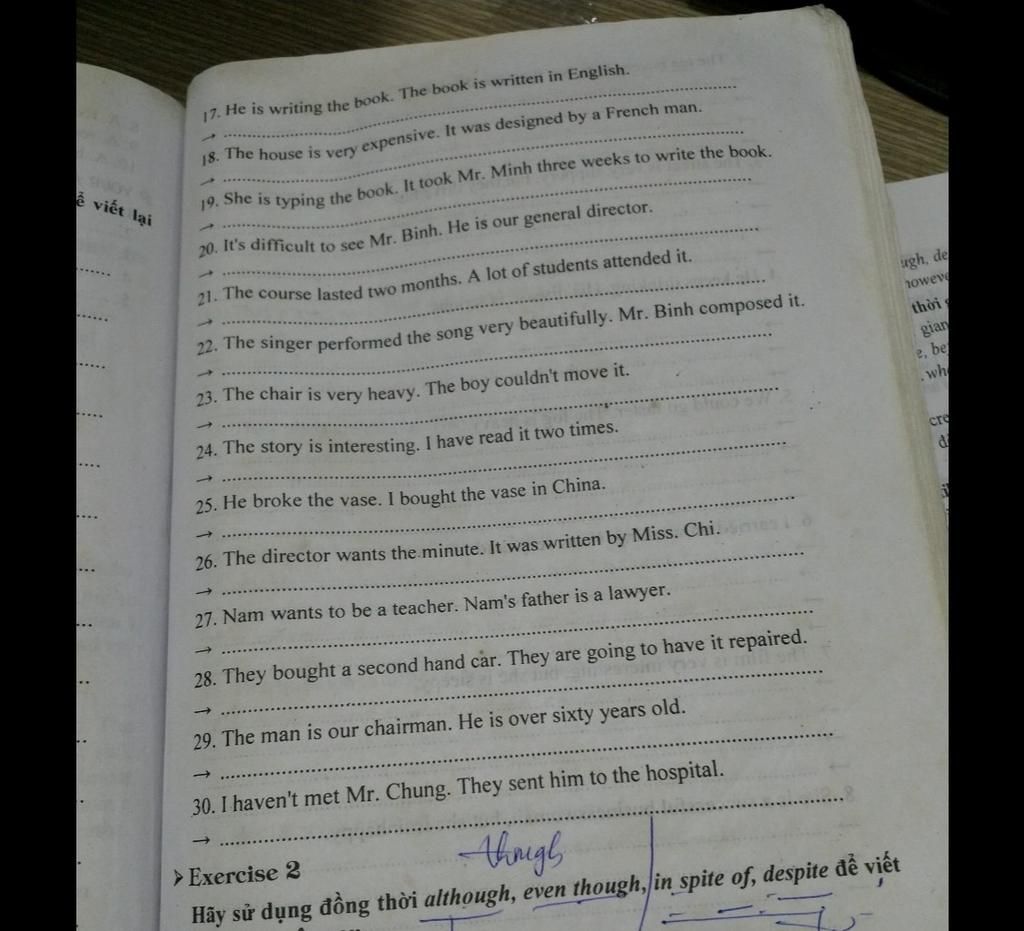 17. He is writing the book. The book is written in English.
→ ........................................
18. The house is very expensive. It was designed by a French man.
→ ........................................
19. She is typing the book. It took Mr. Minh three weeks to write the book.
→ ........................................
20. It's difficult to see Mr. Binh. He is our general director.
→ ........................................
21. The course lasted two months. A lot of students attended it.
→ ........................................
22. The singer performed the song very beautifully. Mr. Binh composed it.
→ ........................................
23. The chair is very heavy. The boy couldn't move it.
→ ........................................
24. The story is interesting. I have read it two times.
→ ........................................
25. He broke the vase. I bought the vase in China.
→ ........................................
26. The director wants the minute. It was written by Miss. Chi.
→ ........................................
27. Nam wants to be a teacher. Nam's father is a lawyer.
→ ........................................
28. They bought a second hand car. They are going to have it repaired.
→ ........................................
29. The man is our chairman. He is over sixty years old.
→ ........................................
30. I haven't met Mr. Chung. They sent him to the hospital.
→ ........................................
though
➢ Exercise 2
Hãy sử dụng đồng thời although, even though, in spite of, despite để viết
viết lại
thời